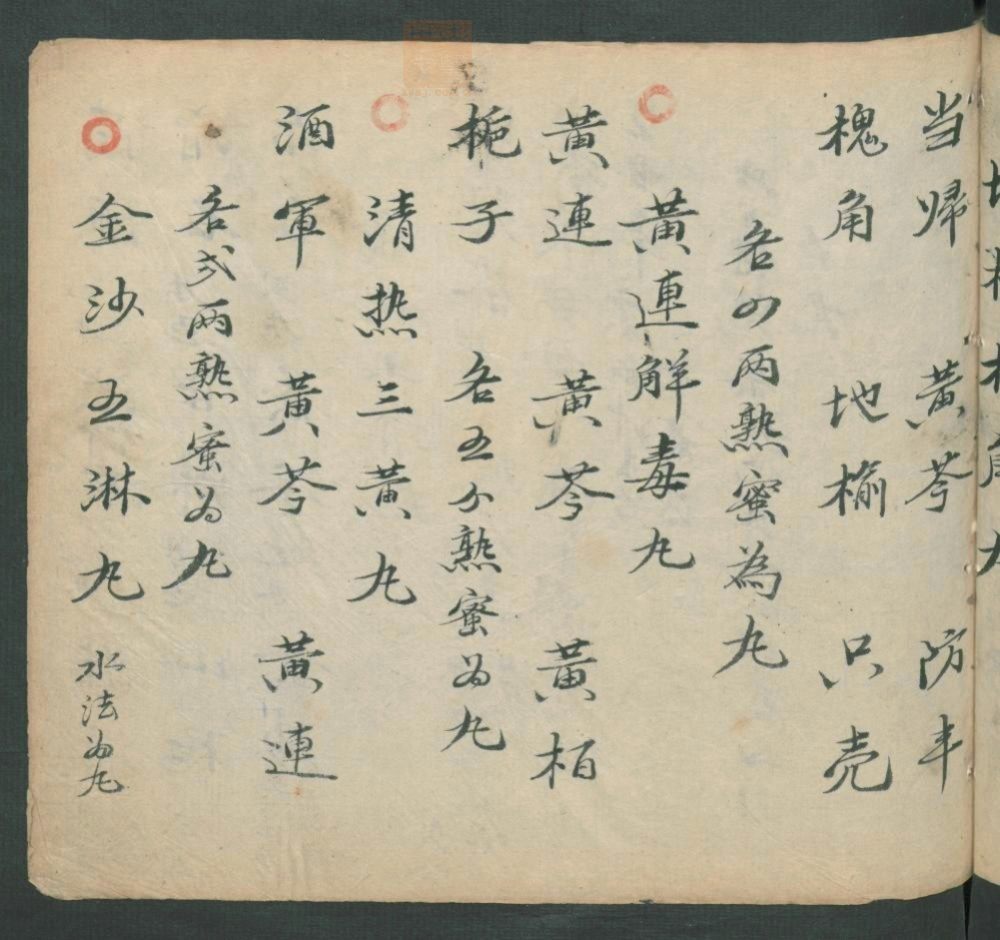 当归 黄芩 防丰
槐角 地榆 只壳
各四两熟蜜為丸
黄連解毒丸
黄連 黄芩 黄柏
栀子 各五分熟蜜为丸
清热三黄丸
酒軍 黄芩 黄連
各弍两熟蜜为丸
金沙五淋丸 水法为丸